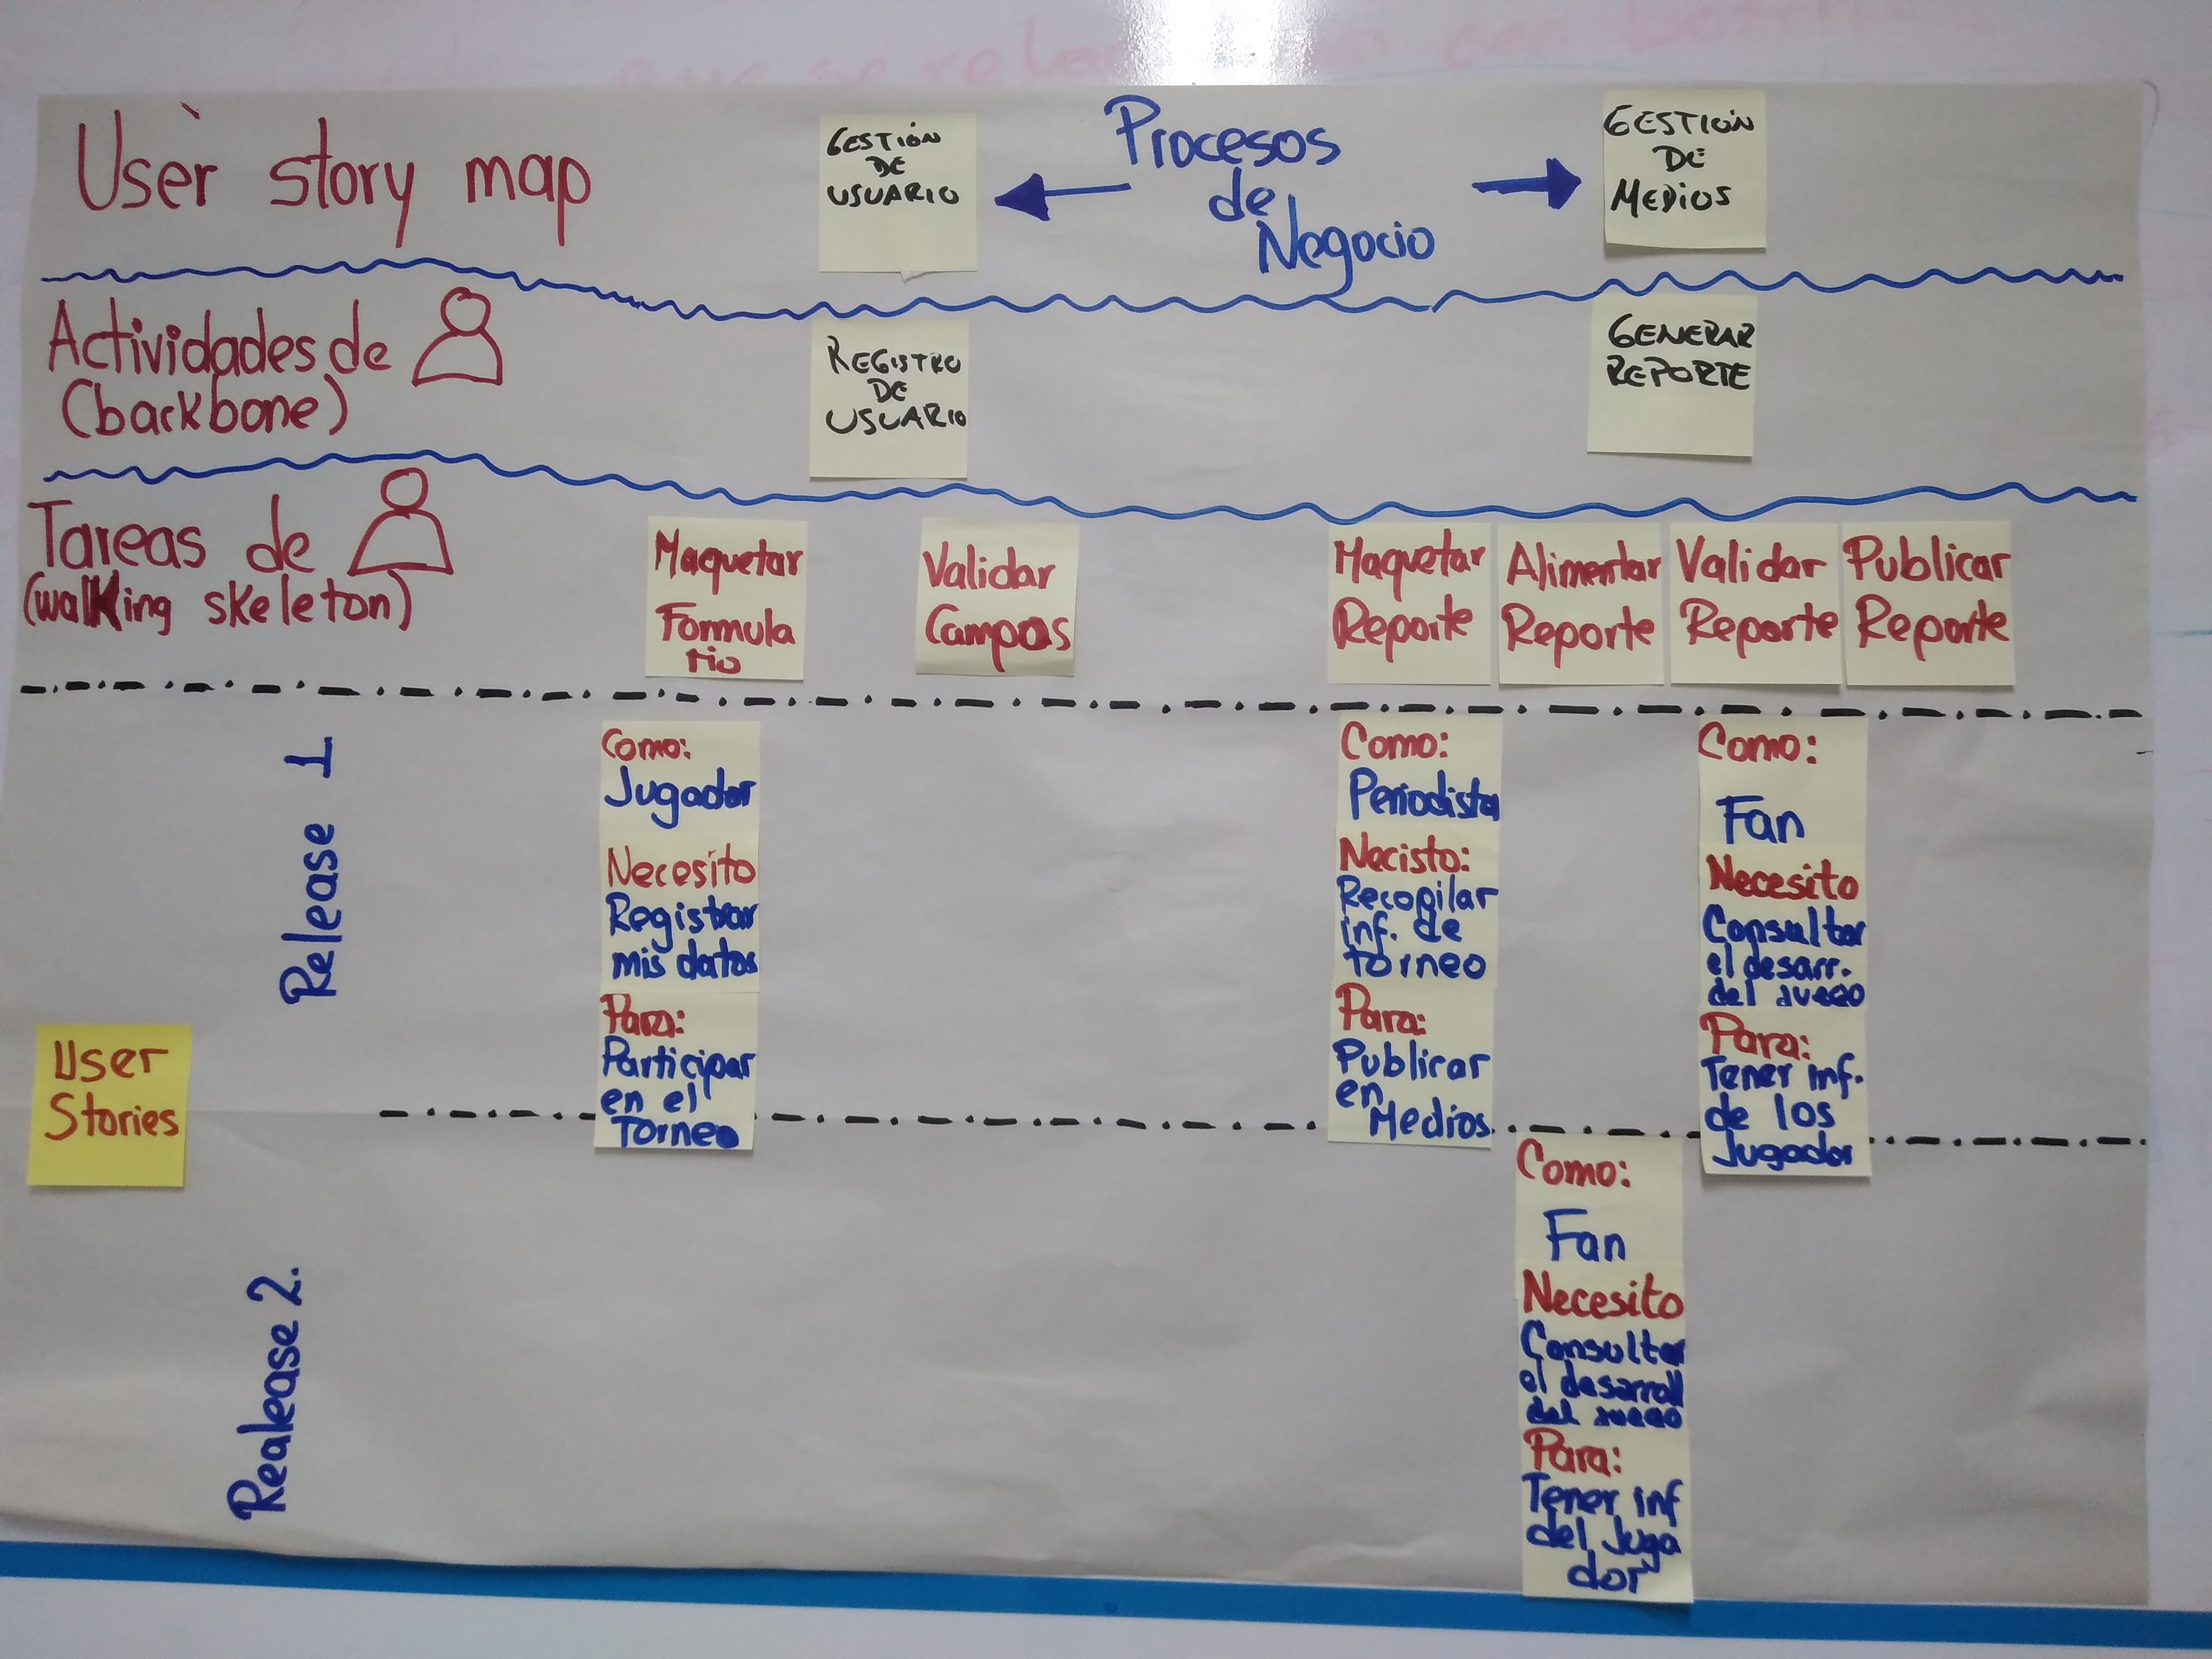 User story map
GESTIÓN
DE
USUARIO
Procesos
de
Negocio
GESTIÓN
DE
MEDIOS
Actividades de
(backbone)
REGISTRO
DE
USUARIO
GENERAR
REPORTE
Tareas de
(walking skeleton)
Maquetar
Formula
rio
Validar
Campos
Maquetar
Reporte
Alimentar
Reporte
Validar
Reporte
Publicar
Reporte
Release 1
Como:
Jugador
Necesito
Registrar
mis datos
Para:
Participar
en el
Torneo
Como:
Periodista
Necisto:
Recopilar
inf. de
torneo
Para:
Publicar
en
Medios
Como:
Fan
Necesito
Consultar
el desarr.
del juego
Para:
Tener inf.
de los
Jugador
User
Stories
Realease 2.
Como:
Fan
Necesito
Consultar
el desarroll
del juego
Para:
Tener inf
del Juga
dor